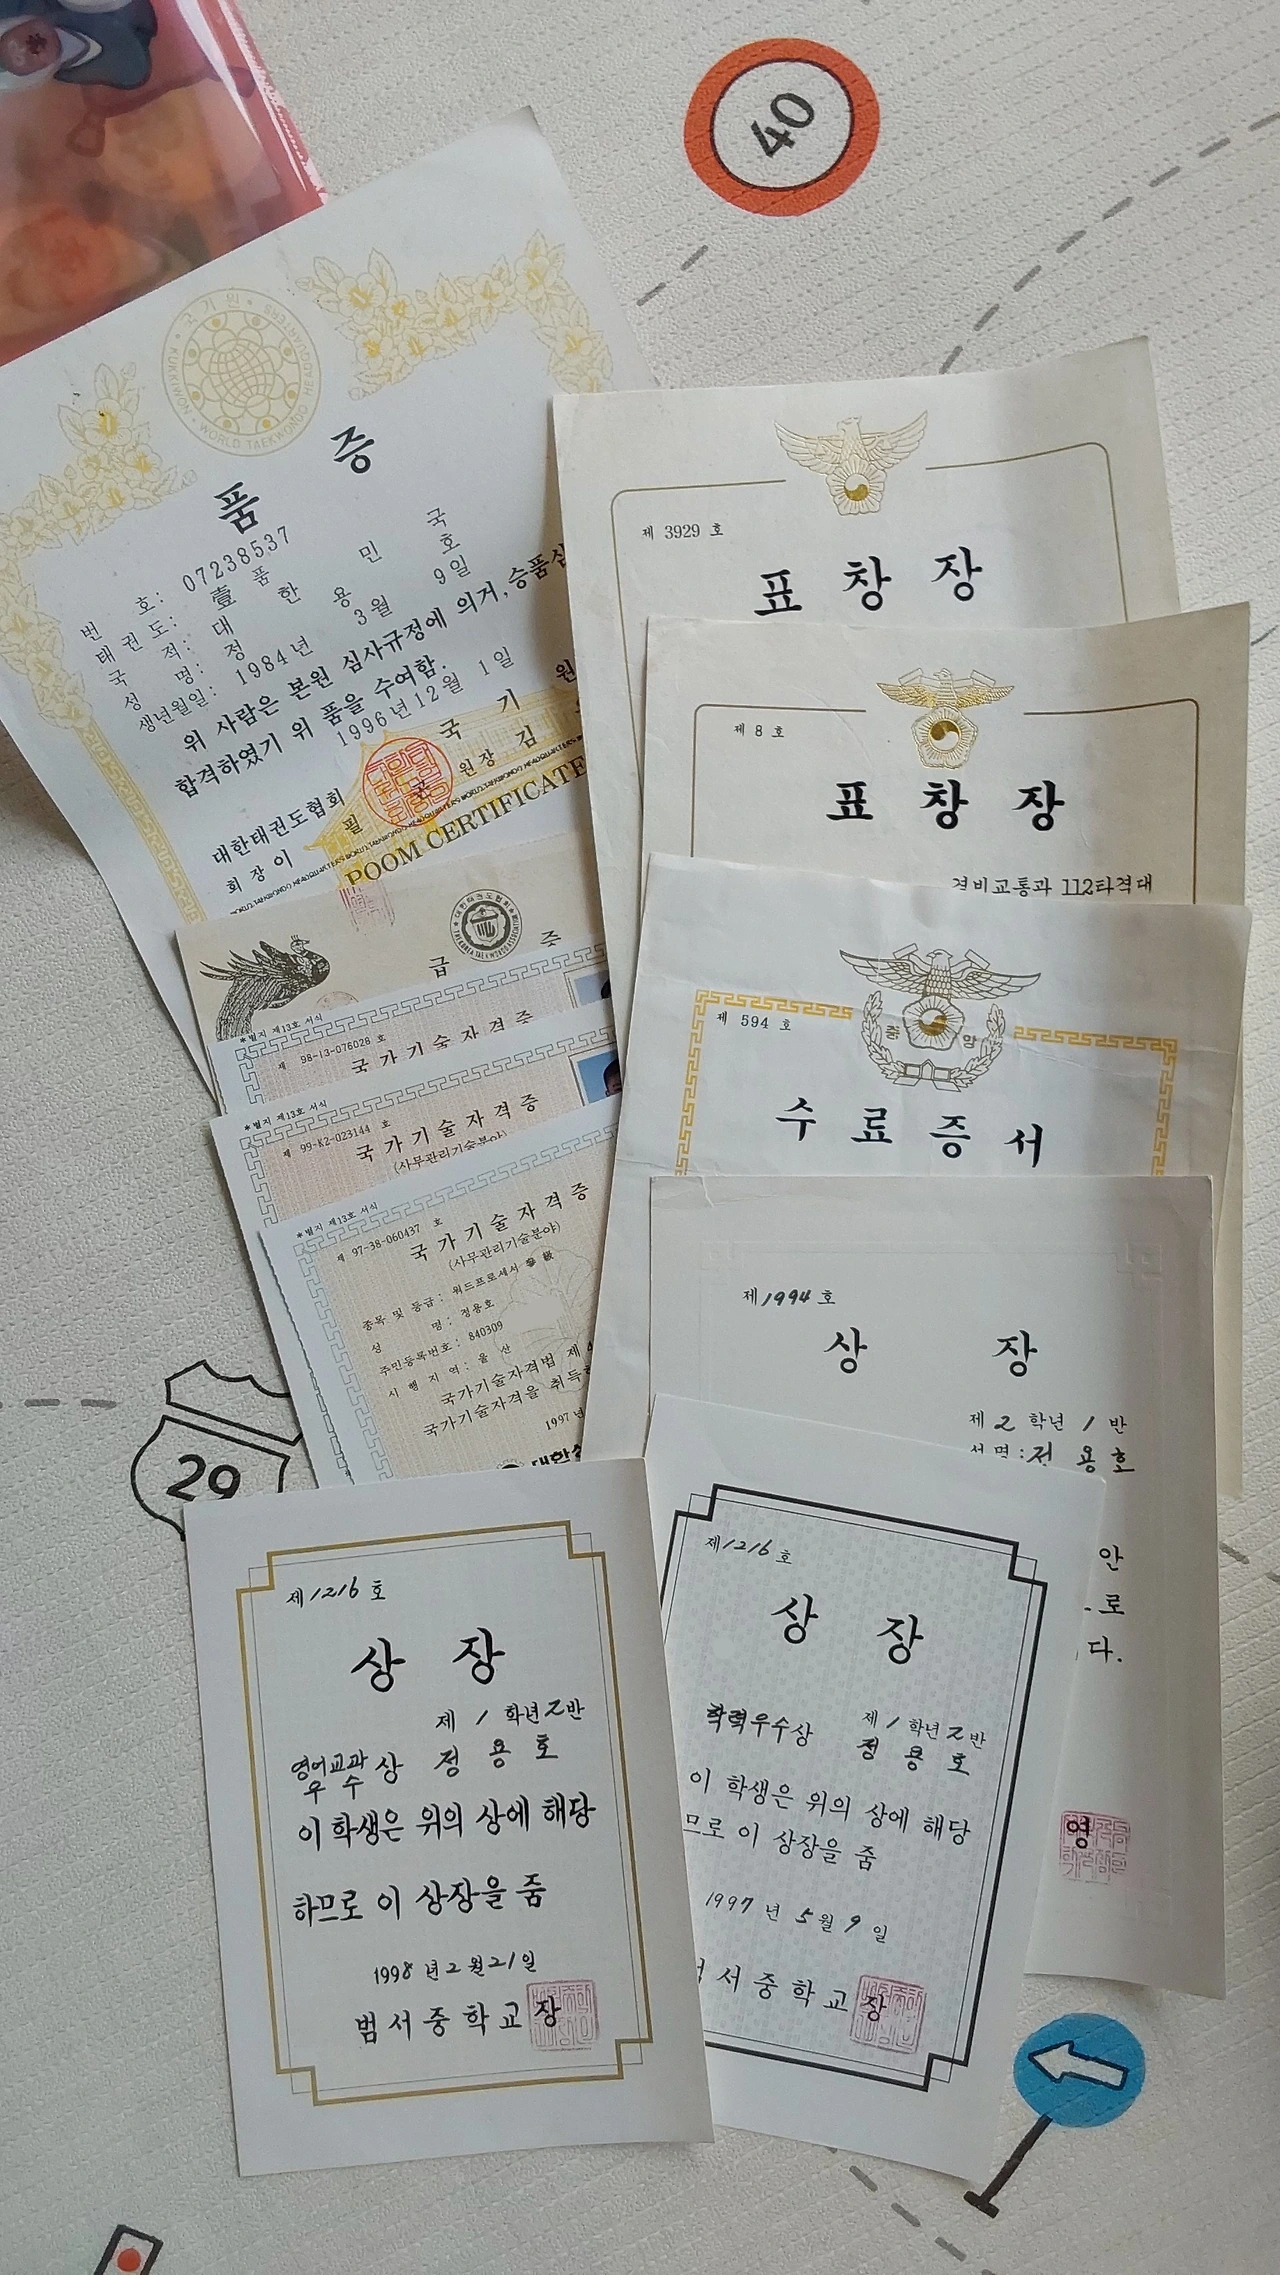 40
국기원
KUKKIWON · WORLD TAEKWONDO HEADQUARTERS
품 증
번 호: 07238537
태 권 도: 壹 품
국 적: 대 한 민 국
성 명: 정 용 호
생년월일: 1984년 3월 9일
위 사람은 본원 심사규정에 의거, 승품심
합격하였기 위 품을 수여함.
1996년 12월 1일
국 기 원
원장 김
대한태권도협회
회 장 이 필 곤
POOM CERTIFICATE
급 증
*별지 제13호 서식
제 98-I3-076028 호
국 가 기 술 자 격 증
*별지 제13호 서식
제 99-K2-023144 호
국 가 기 술 자 격 증
(사무관리기술분야)
*별지 제13호 서식
제 97-38-060437 호
국 가 기 술 자 격 증
(사무관리기술분야)
종목 및 등급: 워드프로세서
성 명: 정용호
주민등록번호: 840309
시 행 지 역: 울 산
국가기술자격법 제4
국가기술자격을 취득하
1997년
제 3929 호
표 창 장
제 8 호
표 창 장
경비교통과 112타격대
제 594 호
중 앙
수 료 증 서
제1994호
상 장
제 2 학년 1 반
성명:정 용 호
안
로
다.
영
29
제1216호
상 장
제 1 학년 2반
영어교과
우 수 상 정 용 호
이 학생은 위의 상에 해당
하므로 이 상장을 줌
1998년 2월 21일
범 서 중 학 교 장
제1216호
상 장
학력우수상 제 1 학년 2반
정 용 호
이 학생은 위의 상에 해당
므로 이 상장을 줌
1997년 5월 9일
서 중 학 교 장